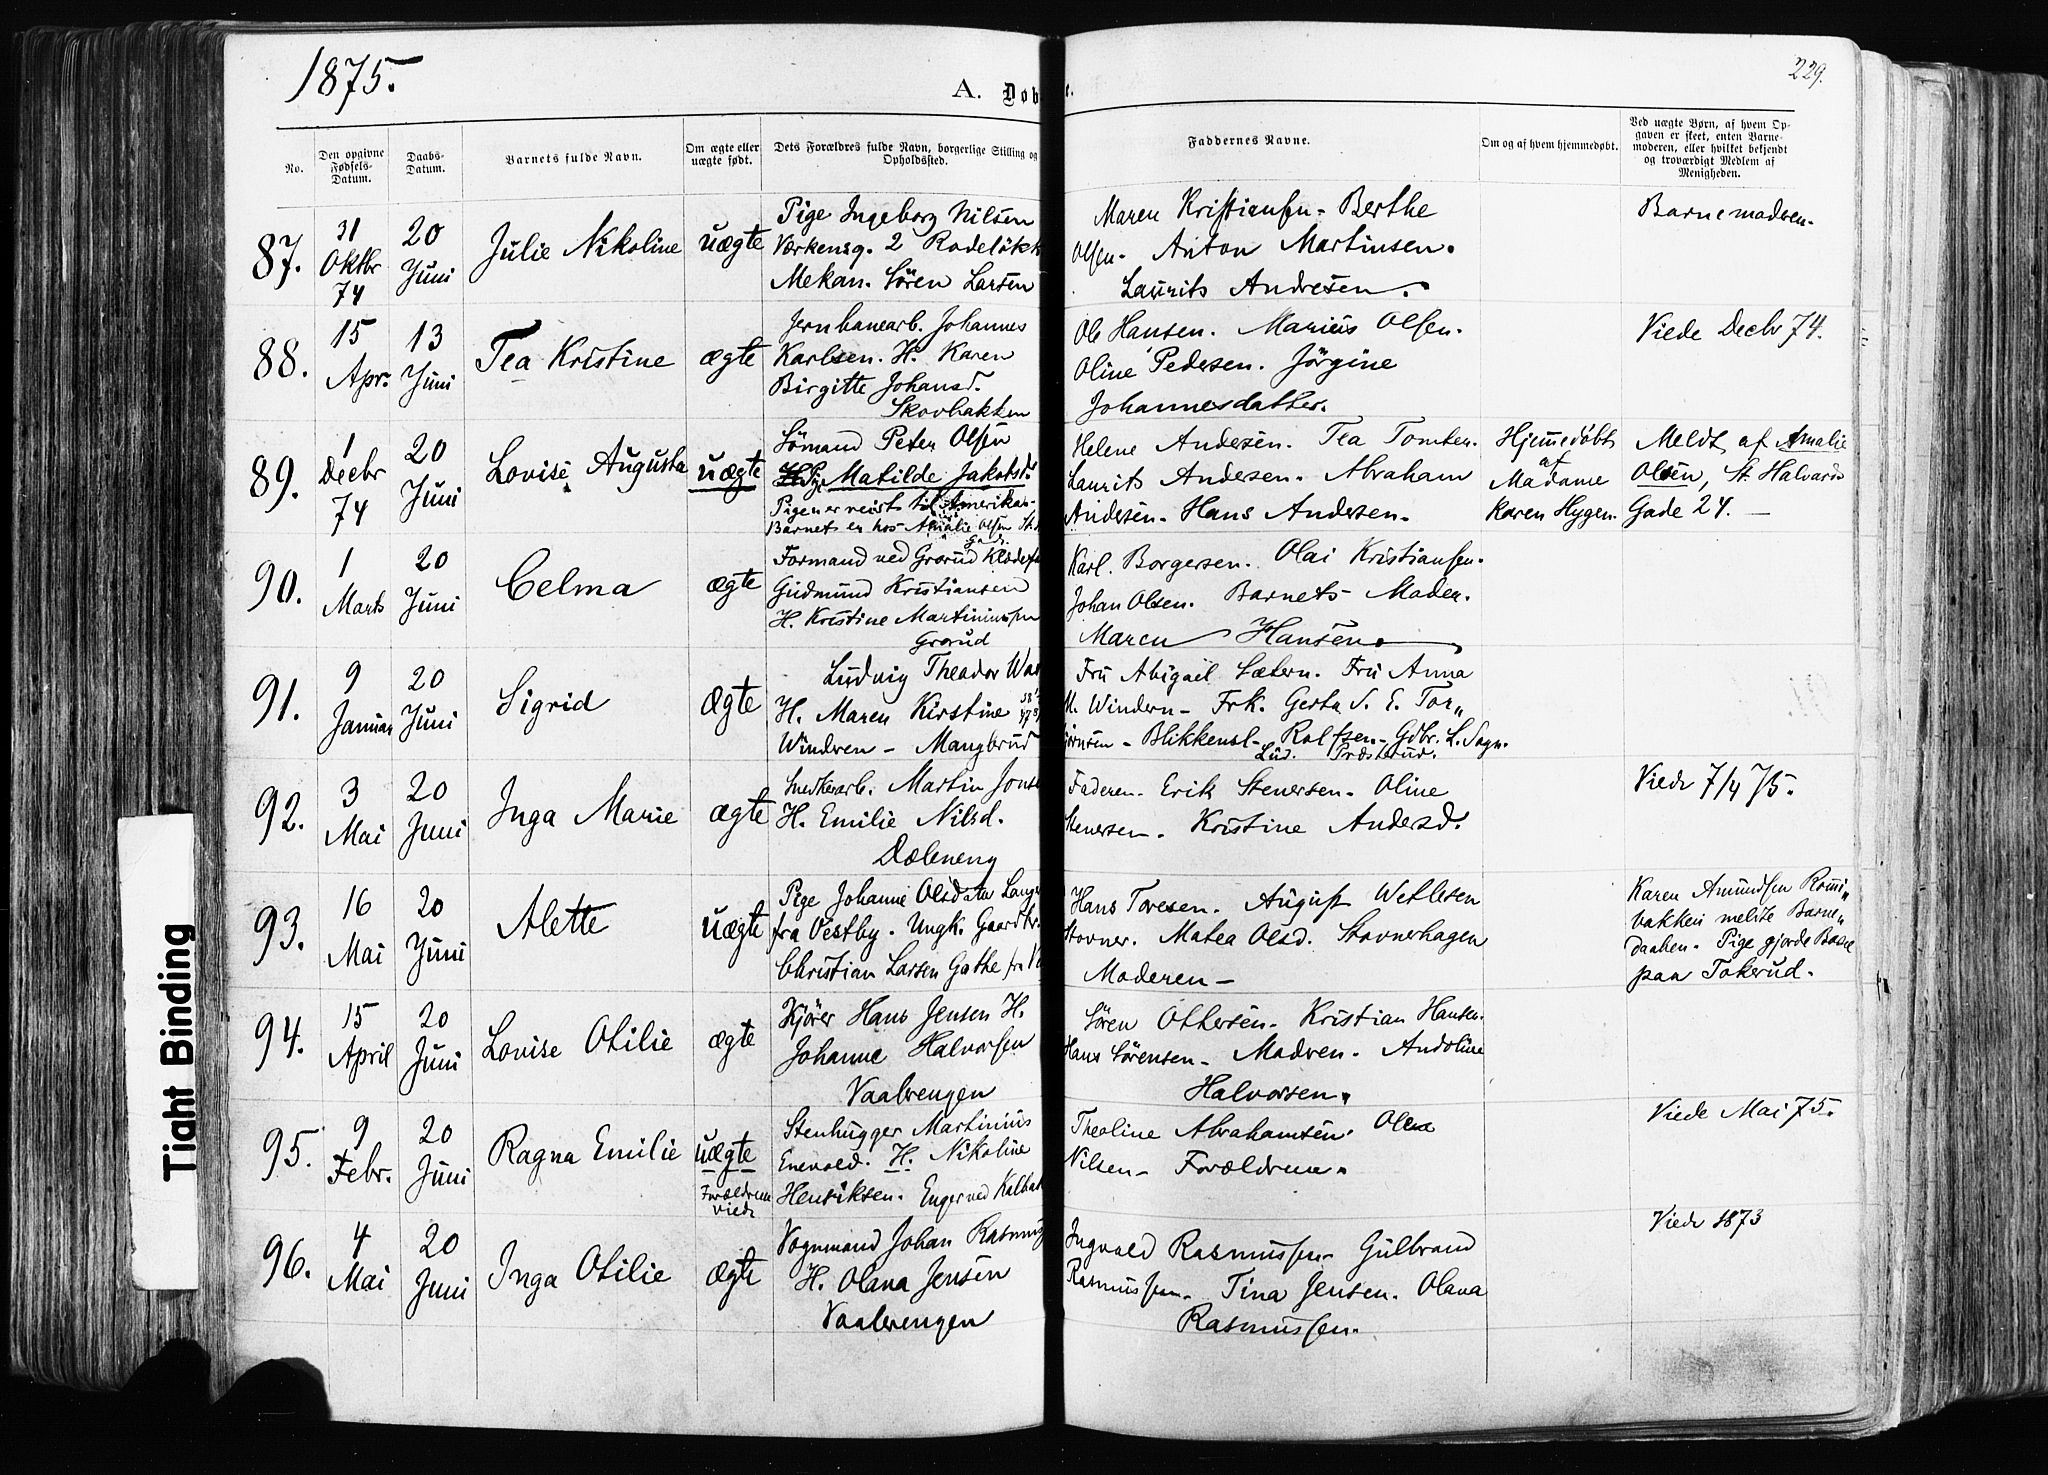 1875.
229.
A. Døb
e.
No.
Den opgivne Fødsels-Datum.
Daabs-Datum.
Barnets fulde Navn.
Om ægte eller uægte født.
Dets Forældres fulde Navn, borgerlige Stilling og Opholdssted.
Faddernes Navne.
Om og af hvem hjemmedøbt.
Ved uægte Børn, af hvem Op-
gaven er skeet, enten Barne-
moderen, eller hvilket bekjendt
og troværdigt Medlem af
Menigheden.
87.
31
Oktbr
74
20
Juni
Julie Nikoline
uægte
Pige Ingeborg Nilsen
Værkensg. 2 Rodeløkk
Mekan. Sören Larsen
Maren Kristiansen - Berthe
Olsen - Anton Martinsen.
Laurits Andresen.
Barnemadren-
88.
15
Apr.
13
Juni
Tea Kristine
ægte
Jernbanearb. Johannes
Karlsen. H. Karen
Birgitte Johansd.
Skovbakken
Ole Hansen. Marius Olsen.
Oline Pedersen. Jörgine
Johannesdatter.
Viede Decbr 74.
89.
1
Decbr
74
20
Juni
Lovise Augusta
uægte
Sömand Peter Olsen
Pige Matilde Jakobsd.
Pigen er reist til Amerika -
Barnet er hos Amalie Olsen St.
Gade
Helene Andesen. Tea Tomten.
Laurits Andersen. Abraham
Andesen. Hans Andersen.
Hjemmedöbt
af
Madame
Karen Hygen.
Meldt af Amalie
Olsen, St. Halvards
Gade 24. -
90.
1
Marts
20
Juni
Celma
ægte
Formand ved Grorud Klædef
Gudmund Kristiansen
H. Kristine Martiniussen
Grorud
Karl Borgersen. Olai Kristiansen.
Johan Olsen. Barnets Moder.
Maren Hansen.
91.
9
Januar
20
Juni
Sigrid
Ægte
Ludvig Theodor Wa
H. Maren Kirstine
Windren - Mangbrud
Fru Abigail Sætern. Fru Anna
M. Windern - Frk. Gerta S. E. Tor„
jörnsen - Blikkensl. Rolfsen - Gdbr. L. Sogn.
Lud. Prästerud.
92.
3
Mai
20
Juni
Inga Marie
ægte
Snedkerarb. Martin Jons
H. Emilie Nilsd.
Dæleneng
Faderen - Erik Stenersen - Oline
Stenersen. Kristine Andersd.
Viede 7/4 75.
93.
16
Mai
20
Juni
Alette
uægte
Pige Johanne Olsdatter Lange
fra Vestby. Ungk. Gaardbr.
Christian Larsen Gothe fra V
Hans Toresen. August Wetlesen
Stovner. Matea Olsd. Stovnerhagen
Moderen -
Karen Amundsen Romi„
bakken meldte Barne„
daaben. Pige gjorde Barne
paa Tokerud.
94.
15
April
20
Juni
Lovise Otilie
ægte
Kjörer Hans Jensen H.
Johanne Halvorsen
Vaalerengen
Sören Ottersen. Kristian Hansen.
Hans Sörensen - Modren. Andoline
Halvorsen.
95.
9
Febr.
20
Juni
Ragna Emilie
uægte
Forældrene
viede
Stenhugger Martinius
Enevold. H. Nikoline
Henriksen. Enger ved Kalbak
Theoline Abrahamsen. Olea
Nilsen - Forældrene.
Viede Mai 75.
96.
4
Mai
20
Juni
Inga Otilie
ægte
Vognmand Johan Rasmus
H. Olava Jensen
Vaalerengen
Ingvald Rasmussen. Gulbrand
Rasmussen. Tina Jensen. Olava
Rasmussen.
Viede 1873
Tight Binding